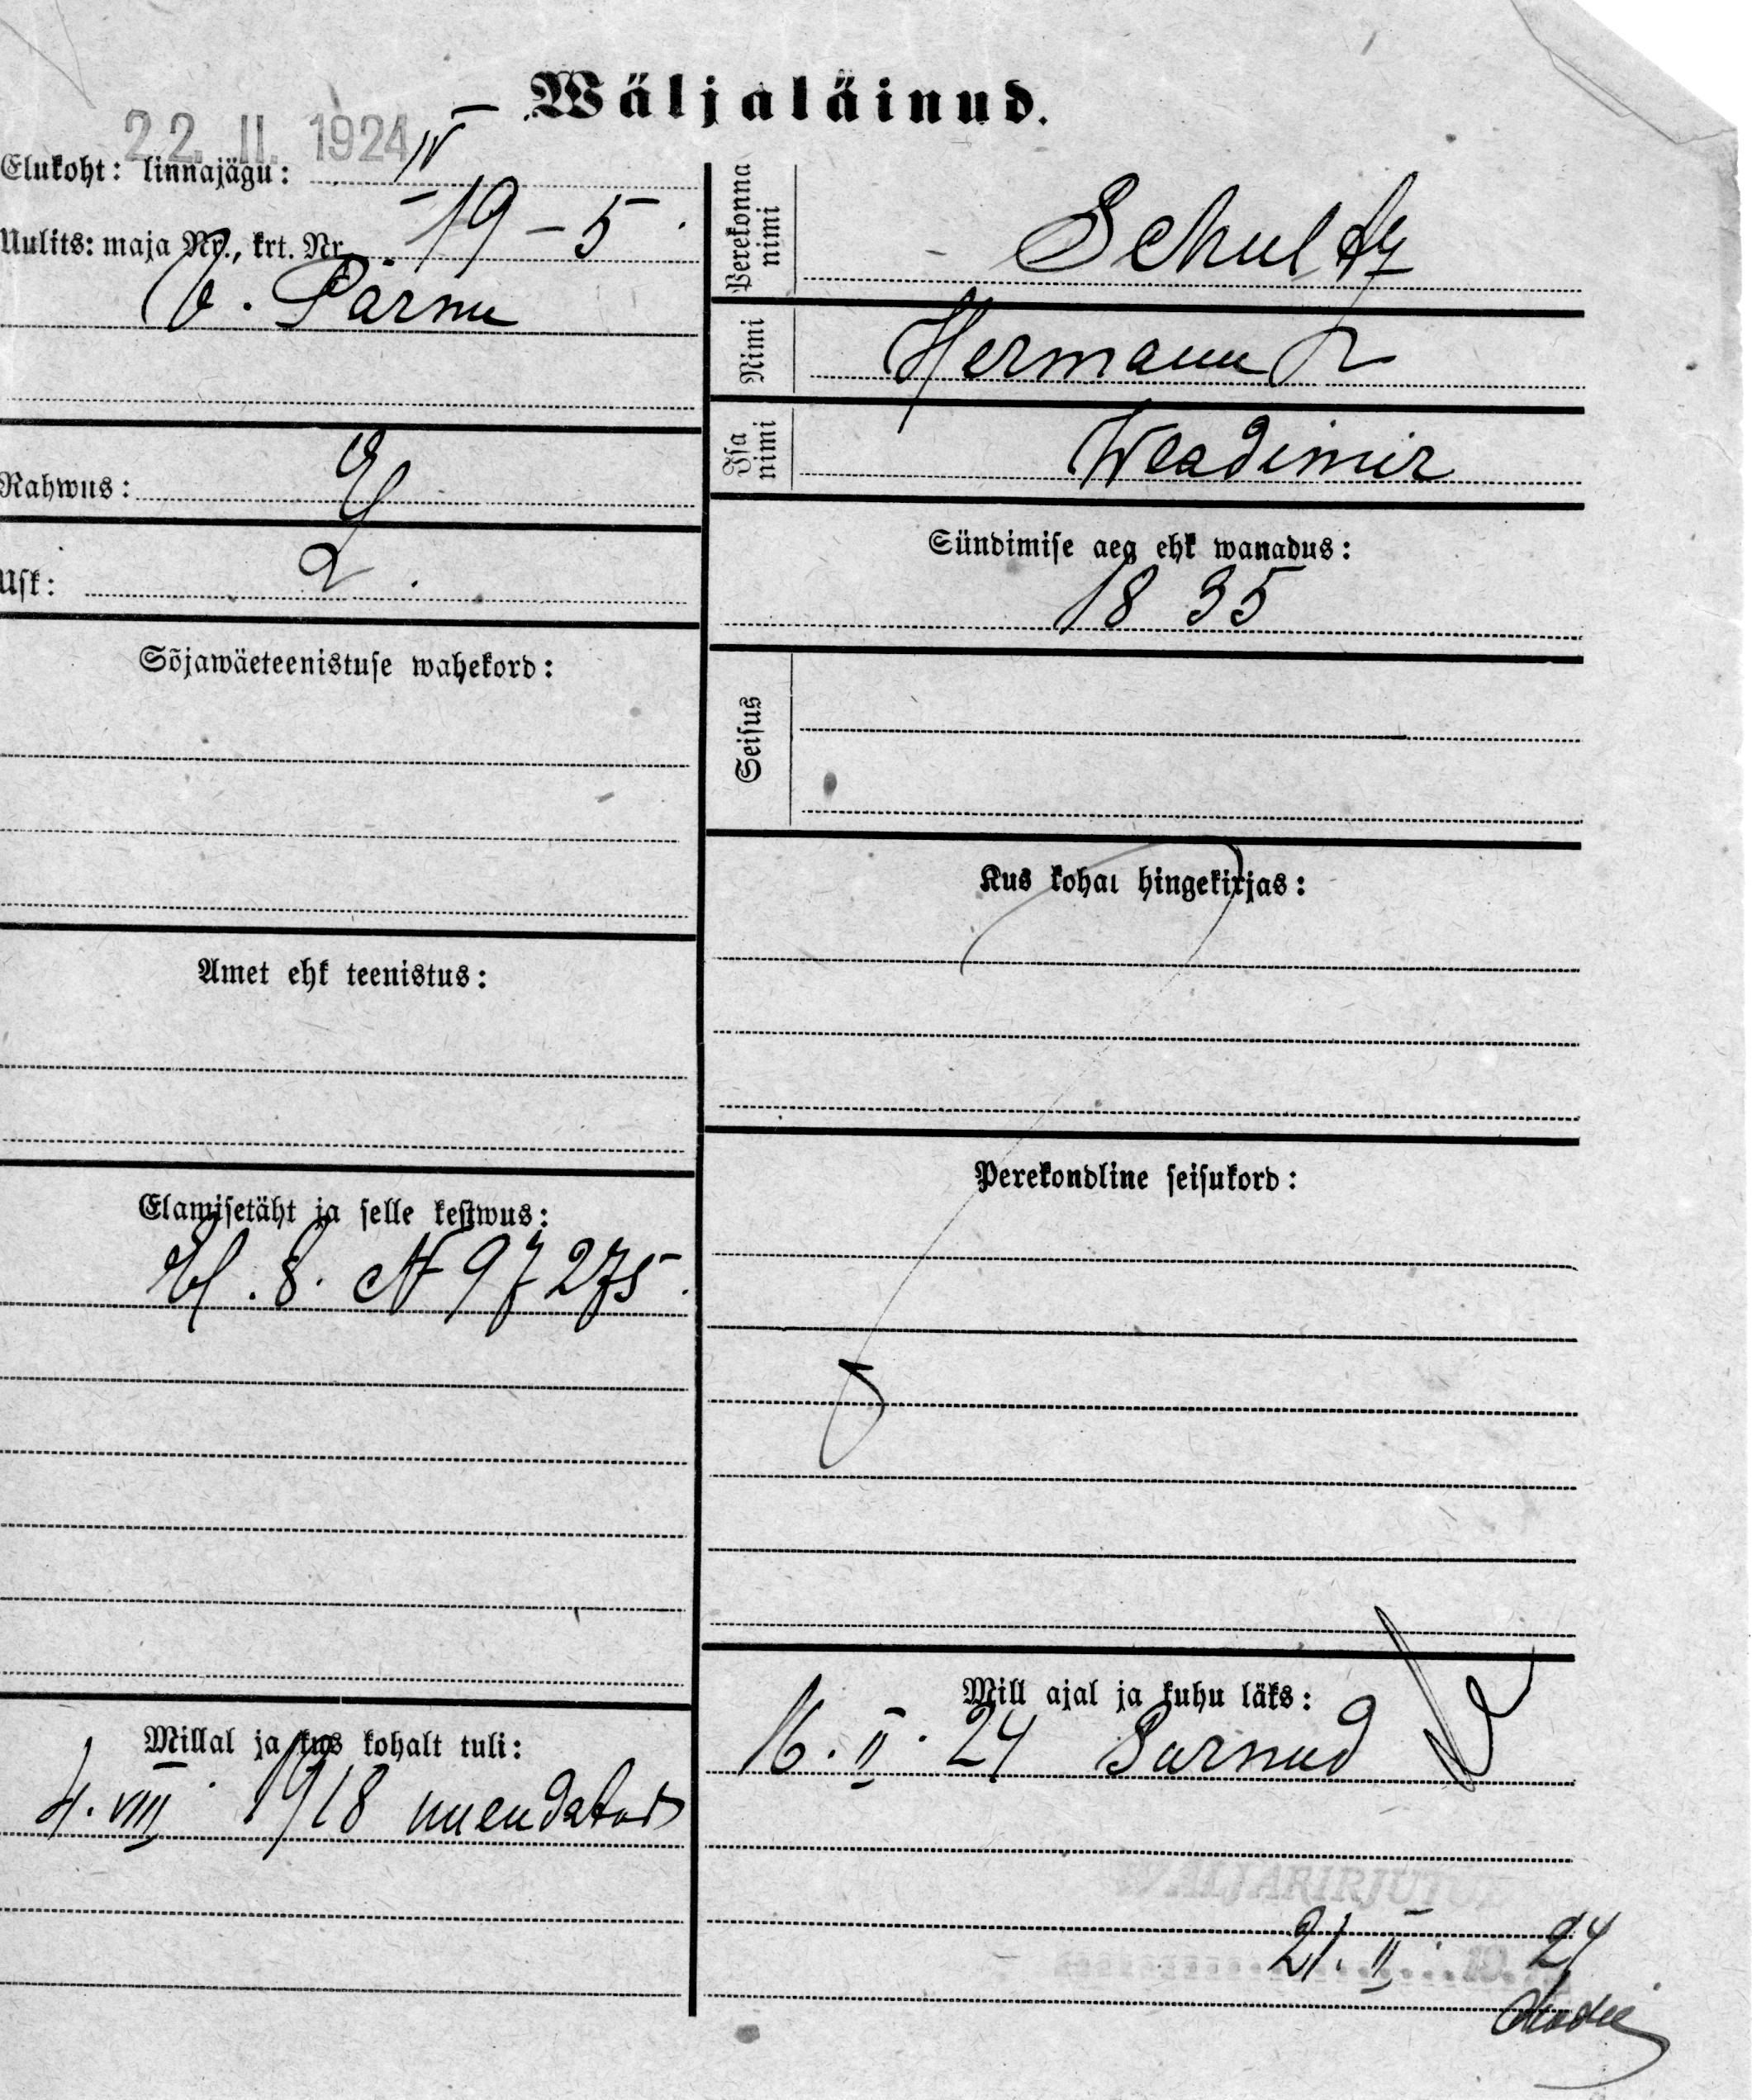 Wäljaläinud.
22. II. 1924
Elukoht: linnajägu: IV
Uulits: maja Nr., krt. Nr. 19-5.
V. Pärnu
Rahwus: E
Usk: L.
Sõjawäeteenistuse wahekord:
Amet ehk teenistus:
Elamisetäht ja selle kestwus:
8. N 97275.
Millal ja kus kohalt tuli:
4. VIII 1918 uuendatud
Perekonna nimi Schultz
Nimi Hermann
Isa nimi Wladimir
Sündimise aeg ehk wanadus:
1895
Seisus
Kus kohal hingekirjas:
Perekondline seisukord:
Mill ajal ja kuhu läks:
16. II. 24 Surnud
WÄLJAKIRJUTUD
21. II. 19 24